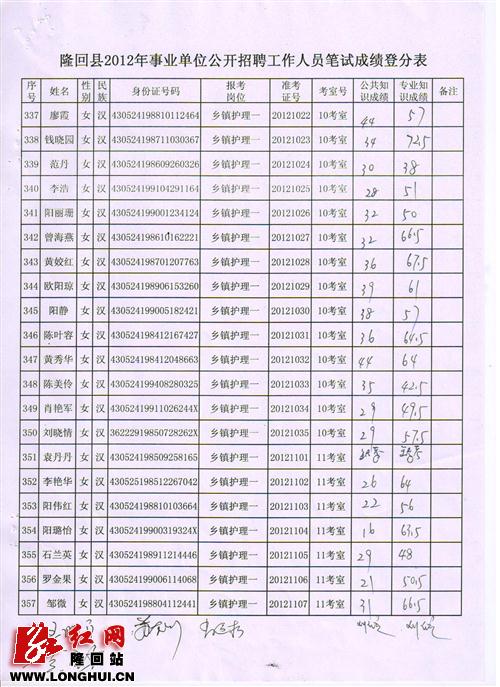 隆回县2012年事业单位公开招聘工作人员笔试成绩登分表
序号 姓名 性别 民族 身份证号码 报考岗位 准考证号 考室号 公共知识成绩 专业知识成绩 备注
337 廖霞 女 汉 430524198810112464 乡镇护理一 20121022 10考室 44 57
338 钱晓园 女 汉 430524198711030367 乡镇护理一 20121023 10考室 34 72.5
339 范丹 女 汉 430524198609260326 乡镇护理一 20121024 10考室 30 38
340 李浩 女 汉 430524199104291164 乡镇护理一 20121025 10考室 28 51
341 阳丽珊 女 汉 430524199001234124 乡镇护理一 20121026 10考室 32 50
342 曾海燕 女 汉 430524198610162221 乡镇护理一 20121027 10考室 32 66.5
343 黄蛟红 女 汉 430524198701207763 乡镇护理一 20121028 10考室 36 67.5
344 欧阳琼 女 汉 430524198906153260 乡镇护理一 20121029 10考室 39 61
345 阳静 女 汉 430524199005182421 乡镇护理一 20121030 10考室 38 57
346 陈叶容 女 汉 430524198412167427 乡镇护理一 20121031 10考室 36 64.5
347 黄秀华 女 汉 430524198412048663 乡镇护理一 20121032 10考室 44 64
348 陈美伶 女 汉 430524199408280325 乡镇护理一 20121033 10考室 35 42.5
349 肖艳军 女 汉 43052419911026244X 乡镇护理一 20121034 10考室 29 49.5
350 刘晓情 女 汉 36222919850728262X 乡镇护理一 20121035 10考室 29 57.5
351 袁丹丹 女 汉 430524198509258165 乡镇护理一 20121101 11考室 缺考 缺考
352 李艳华 女 汉 430525198512267042 乡镇护理一 20121102 11考室 26 64
353 阳伟红 女 汉 430524198810103664 乡镇护理一 20121103 11考室 22 56
354 阳璐怡 女 汉 43052419900319324X 乡镇护理一 20121104 11考室 16 63.5
355 石兰英 女 汉 430524198911214446 乡镇护理一 20121105 11考室 29 48
356 罗金果 女 汉 430524199006114068 乡镇护理一 20121106 11考室 21 50.5
357 邹微 女 汉 430524198804112441 乡镇护理一 20121107 11考室 31 66.5
红网
隆回站
WWW.LONGHUI.CN